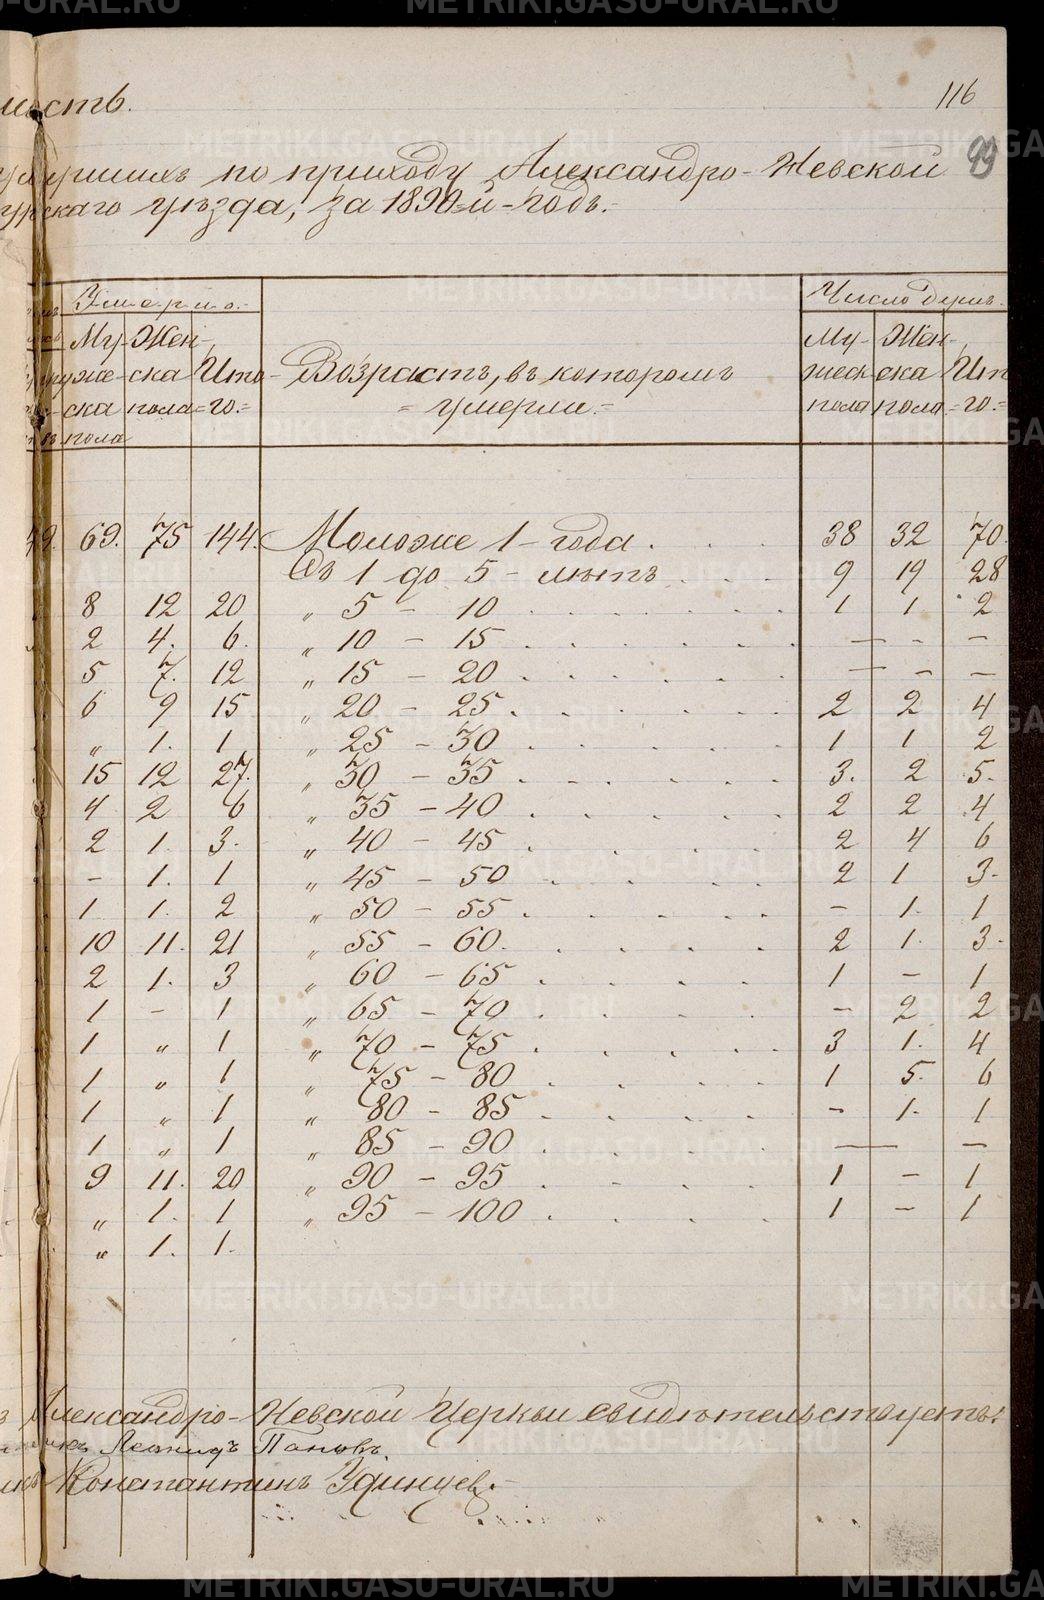 METRIKI.GASO-URAL.RU
116
мость.
умершихъ по приходу Александро-Невской 99
гурскаго уѣзда, за 1890-й годъ.
Умерло. Число душъ.
Му- Жен- Му- Жен-
же- ска Ито- Возрастъ, въ которомъ жеск ска Ит
ска пола го. умерли. пола пола го.
пола
69. 75 144. Моложе 1 года . . . 38 32 70.
Съ 1 до 5 - лѣтъ . . . 9 19 28
8 12 20 „ 5 - 10 . . . 1 1 2
2 4. 6. „ 10 - 15 . . . — - -
5 7. 12 „ 15 - 20 . . . — - —
6 9 15 „ 20 - 25 . . . 2 2 4
„ 1. 1 „ 25 - 30 . . . 1 1 2
15 12 27. „ 30 - 35 . . . 3. 2 5.
4 2 6 „ 35 - 40 . . . 2 2 4
2 1. 3. „ 40 - 45 . . . 2 4 6
- 1. 1 „ 45 - 50 . . . 2 1 3.
1 1. 2 „ 50 - 55 . . . - 1. 1
10 11. 21 „ 55 - 60. . . . 2 1. 3.
2 1. 3 „ 60 - 65 . . . 1 - 1
1 - 1 „ 65 - 70 . . . - 2 2
1 „ 1 „ 70 - 75 . . . 3 1. 4
1 „ 1 „ 75 - 80 . . . 1 5. 6
1 „ 1 „ 80 - 85 . . . - 1. 1
1 „ 1 „ 85 - 90 . . . — —
9 11. 20 „ 90 - 95 . . . 1 - 1
„ 1. 1 „ 95 - 100 . . . 1 - 1
„ 1. 1.
Александро-Невской Церкви свидѣтельствуетъ:
Леонидъ Поповъ
Константинъ Удинцевъ.